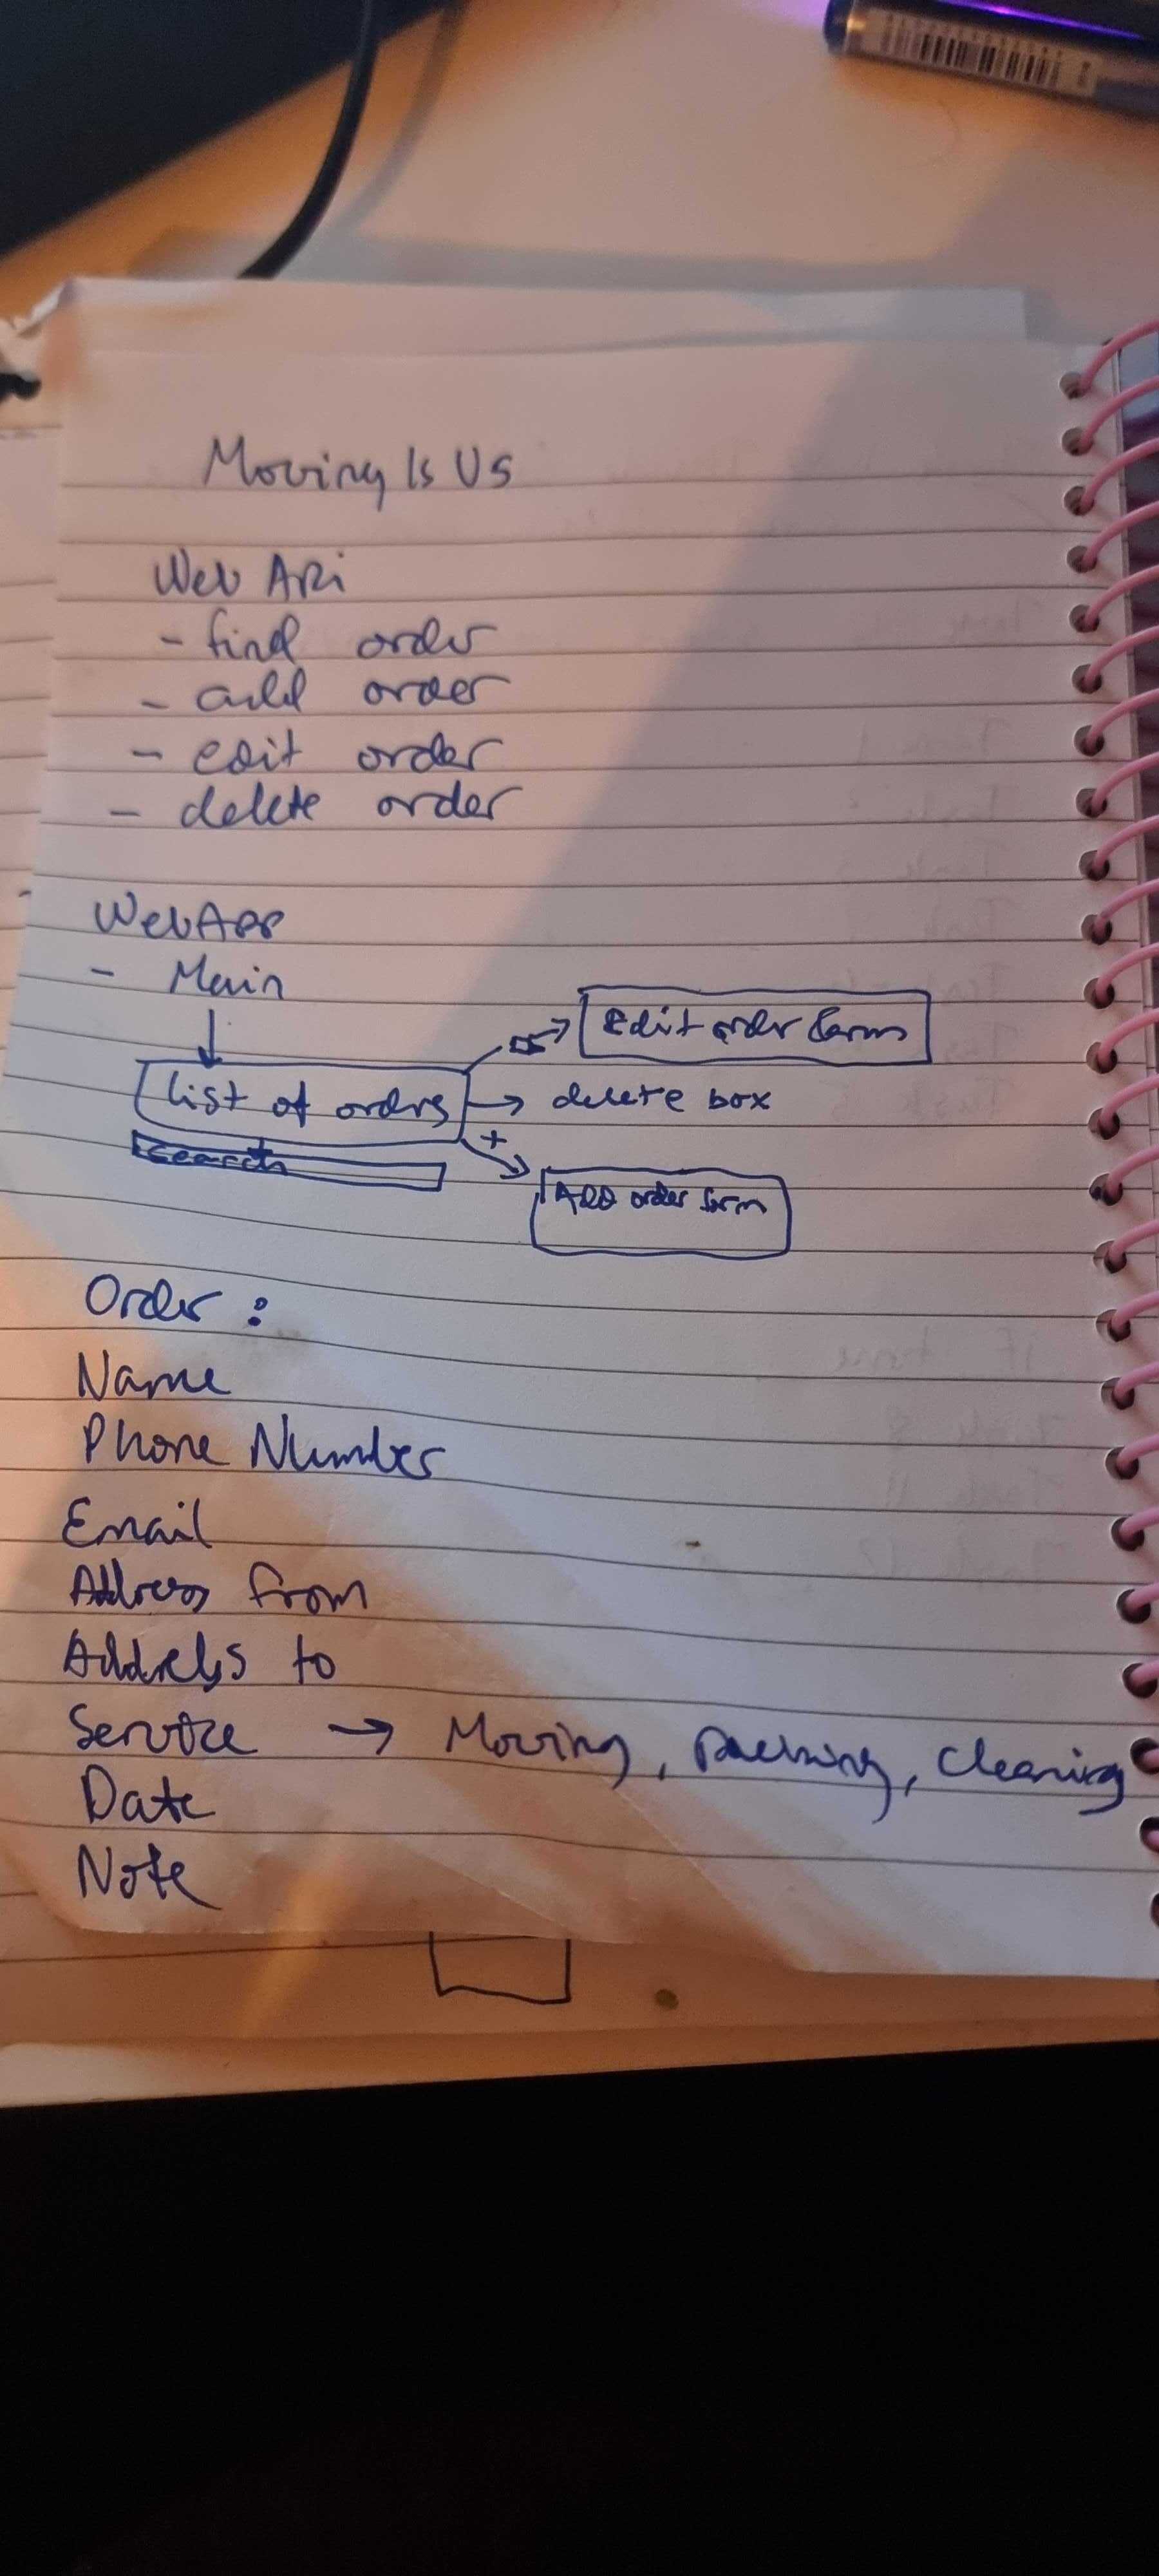 Moving Is Us
Web APi
- find order
- add order
- edit order
- delete order
WebApp
- Main
Edit order form
list of orders → delete box
+
Search
Add order form
Order :
Name
Phone Number
Email
Address from
Address to
Service → Moving, packing, cleaning
Date
Note